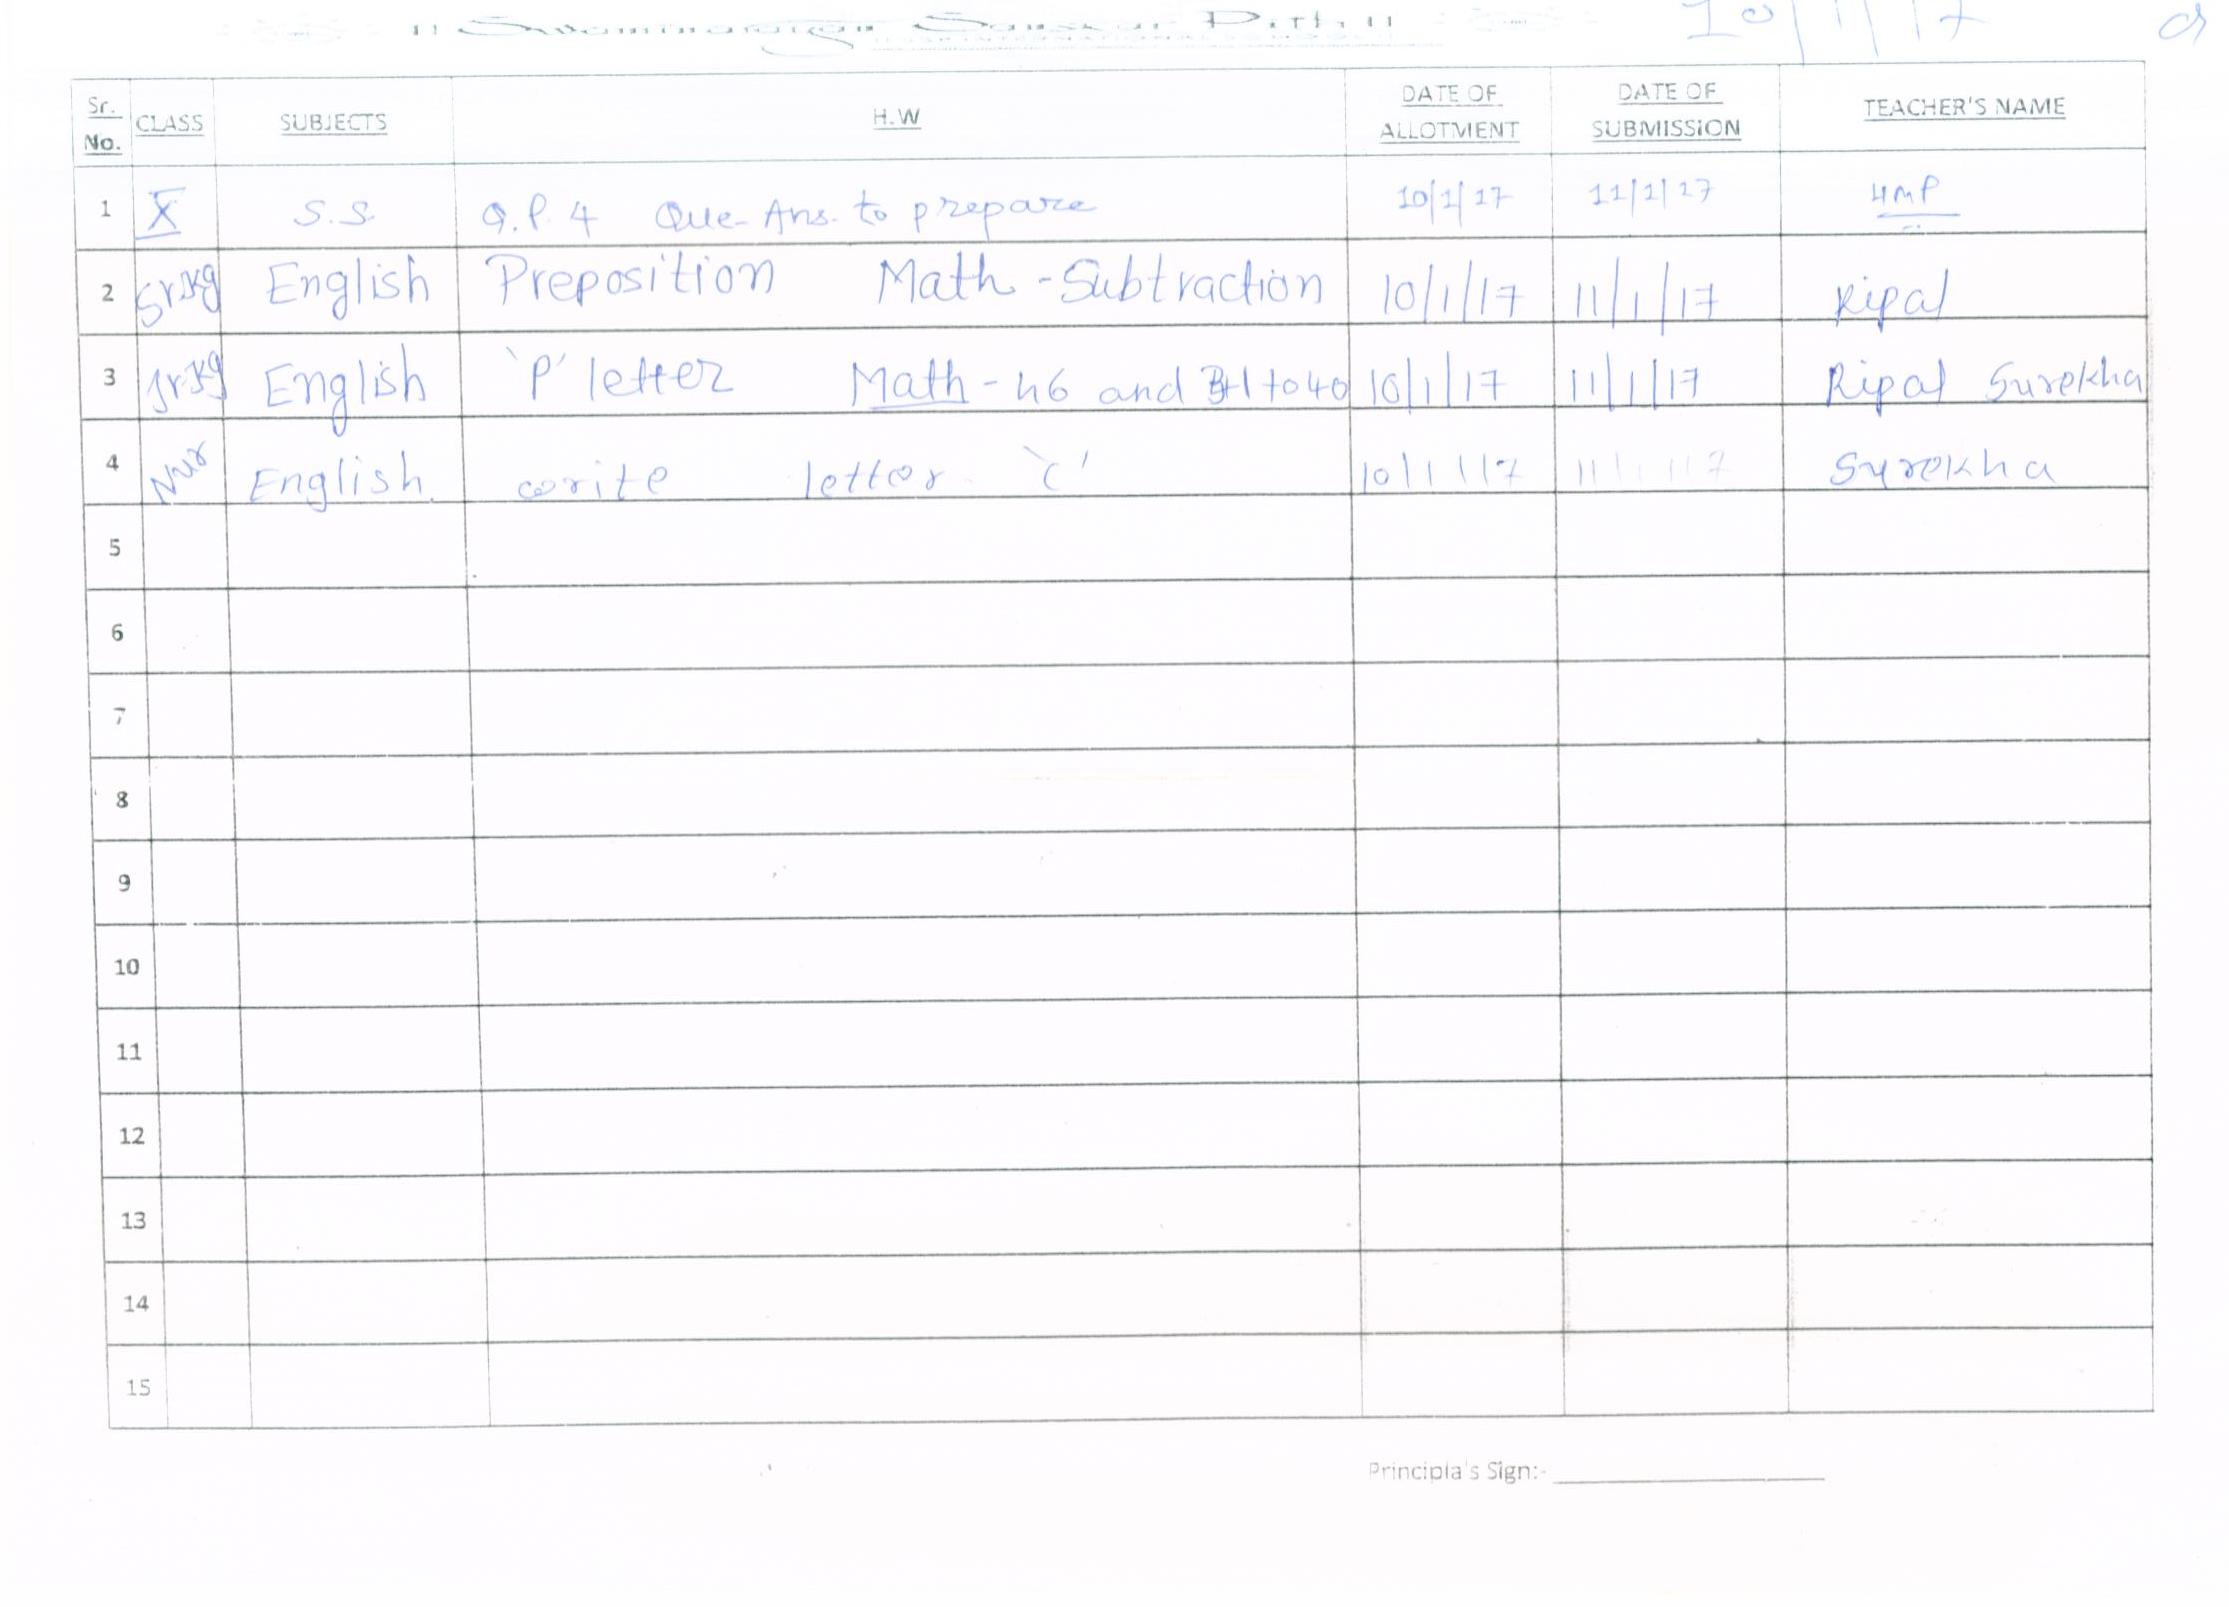 10/1/17
Sr. No. CLASS SUBJECTS H.W DATE OF ALLOTMENT DATE OF SUBMISSION TEACHER'S NAME
1 X S.S. Q.P. 4 Que-Ans. to prepare 10/1/17 11/1/17 HMP
2 Sr.kg English Preposition Math - Subtraction 10/1/17 11/1/17 Ripal
3 Jr.kg English 'P' letter Math - 46 and 31 to 40 10/1/17 11/1/17 Ripal Surekha
4 Nur English. write letter 'c' 10/1/17 11/1/17 Surekha
5
6
7
8
9
10
11
12
13
14
15
Principla's Sign:-